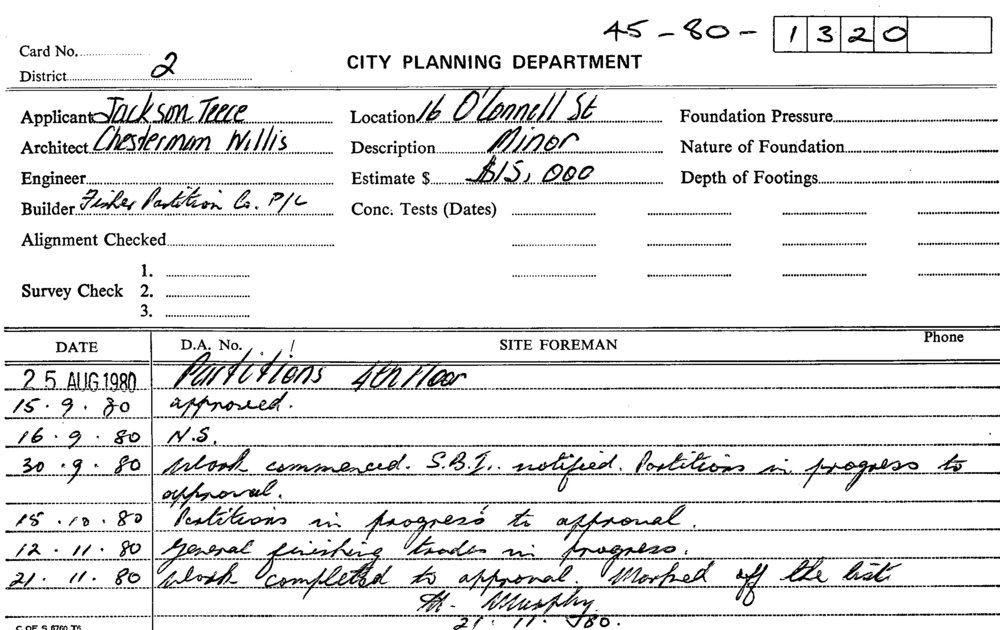 45-80-1320
Card No.
District 2
CITY PLANNING DEPARTMENT
Applicant Jackson Teece Location 16 O'Connell St Foundation Pressure
Architect Chesterman Willis Description Minor Nature of Foundation
Engineer Estimate $ $15,000 Depth of Footings
Builder Fisher Partition Co. P/L Conc. Tests (Dates)
Alignment Checked
1.
Survey Check 2.
3.
DATE D.A. No. SITE FOREMAN Phone
25 AUG 1980 Partitions 4th Floor
15.9.80 approved.
16.9.80 N.S.
30.9.80 Work commenced. S.B.I. notified. Partitions in progress to
approval.
15.10.80 Partitions in progress to approval.
12.11.80 General finishing trades in progress.
21.11.80 Work completed to approval. Marked off the list
Murphy
21.11.80.
C OF S 6760 T5